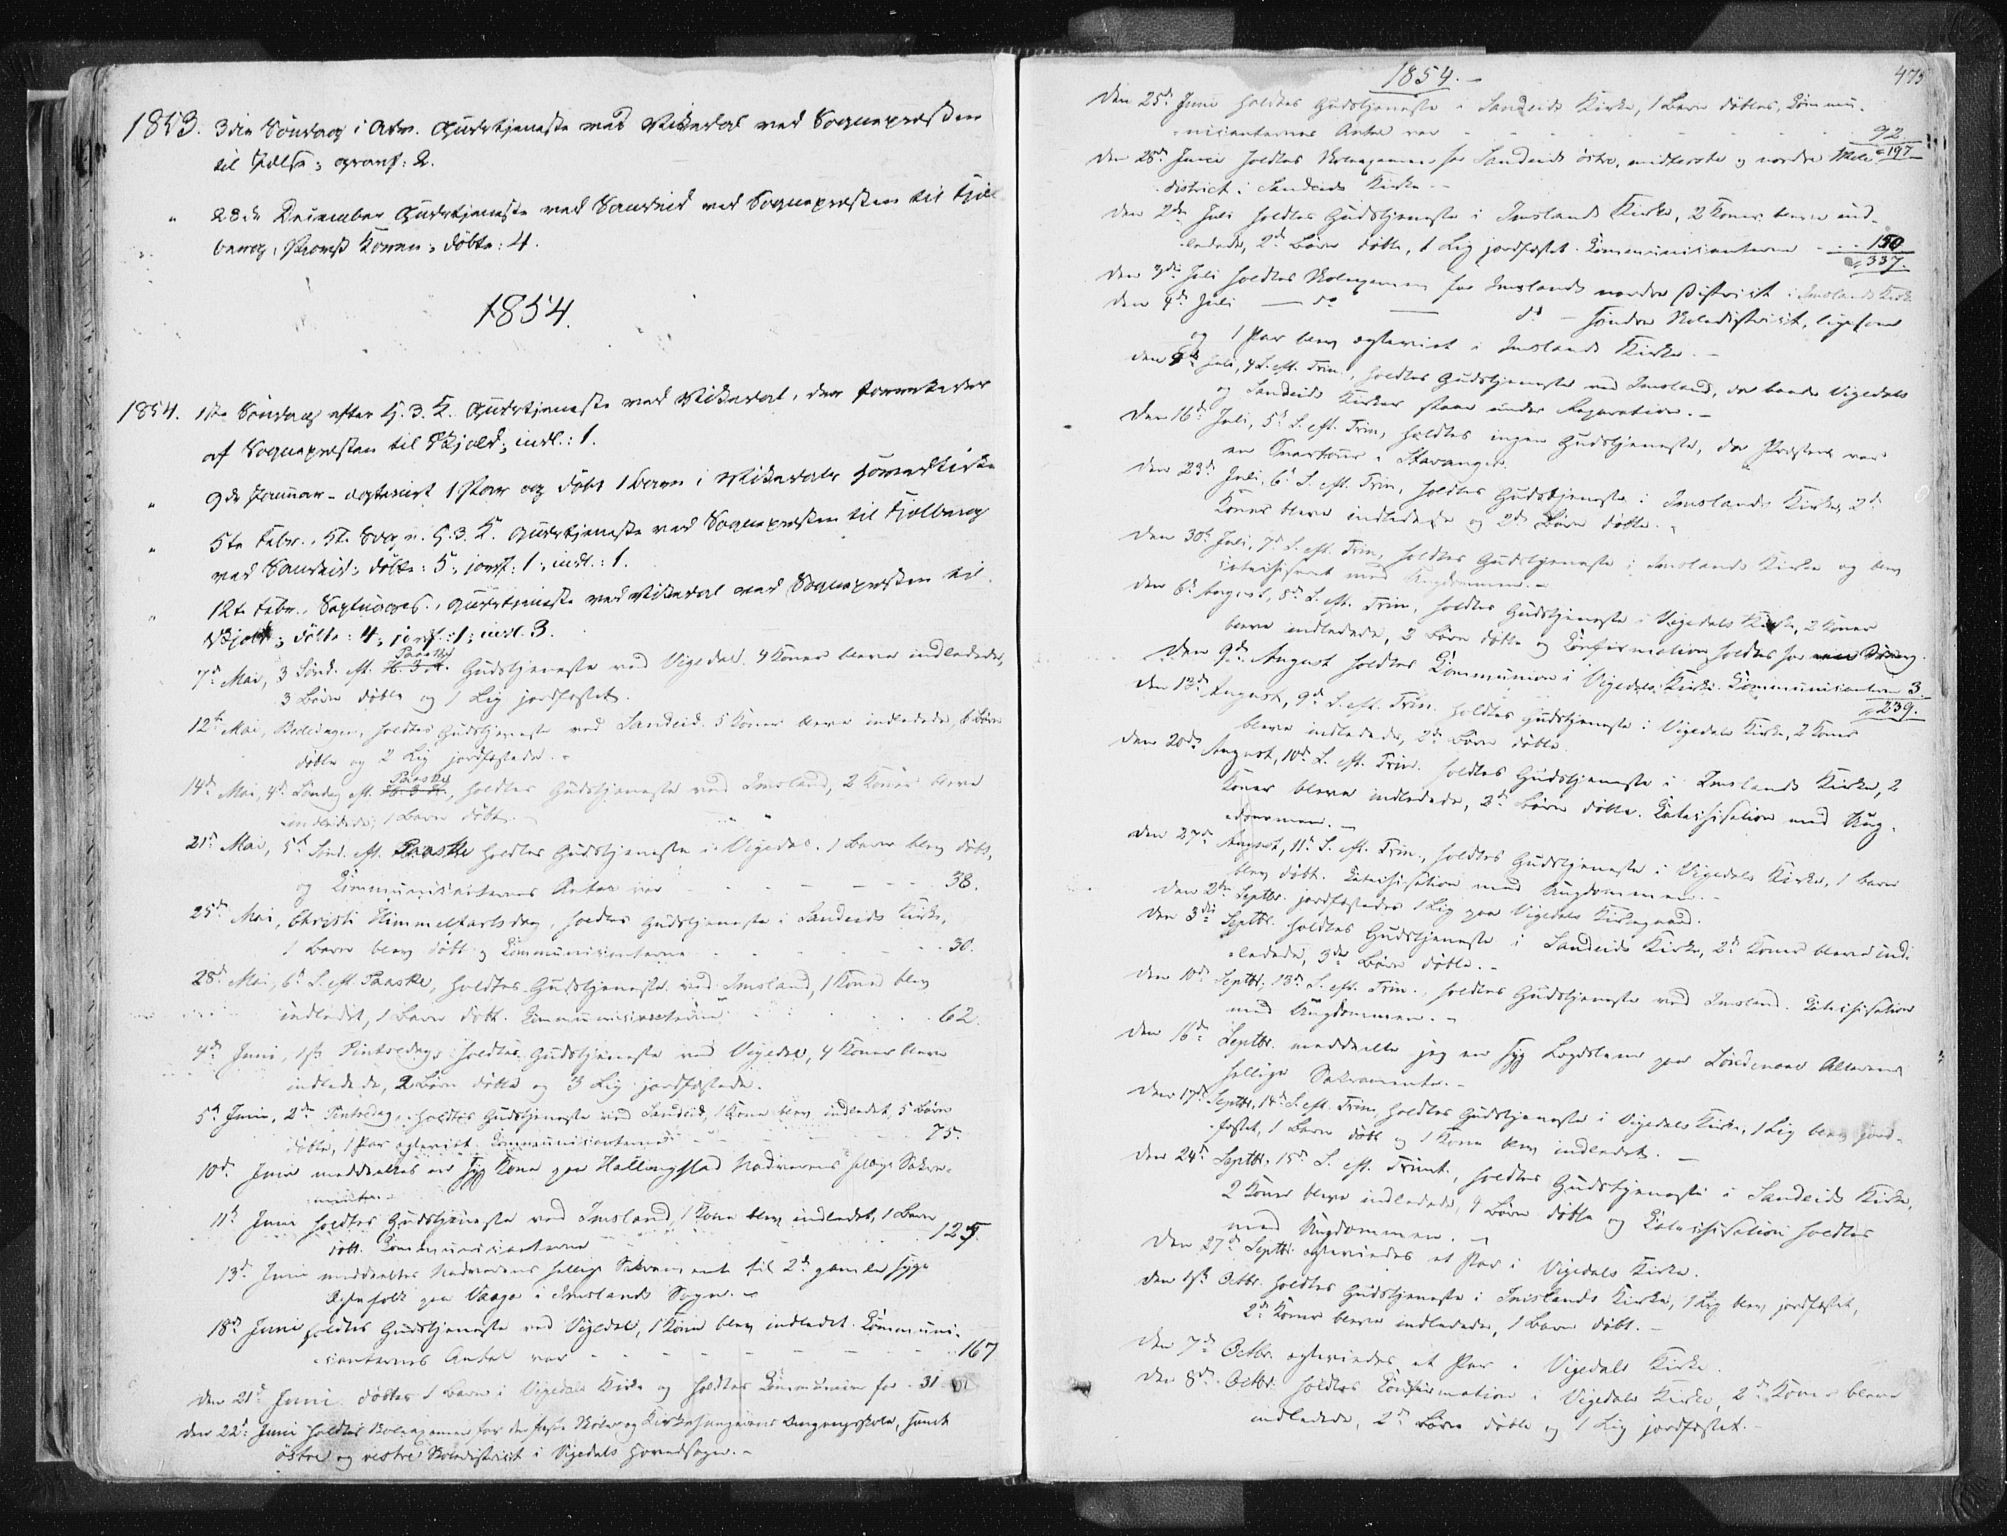 1853. 3die Søndag i Adv. Gudstjeneste ved Vikedal ved Sognepræsten
til
" 28de December Gudstjeneste ved Sandeid ved Sognepræsten til Fjel-
berg, Provst døbte: 4.
1854.
1854. 1ste Søndag efter H. 3. K. Gudstjeneste ved Vikedal, der
af Sognepræsten til Skjold; indl.: 1.
" 9de Januar - egteviet 1 Par og døbt 1 Barn i Vikedals Hovedkirke
" 5te Febr., 5te Sdag e. H. 3. K. Gudstjeneste ved Sognepræsten til Fjelberg
ved Sandeid; døbte: 5; jordf: 1; indl.: 1.
" 12te Febr., Septuages., Gudstjeneste ved Vikedal ved Sognepræsten til
Skjold; døbte: 4; jordf.: 1; indl. 3.
7de Mai, 3 Sønd. eft. H. 3 K. Paaske Gudstjeneste ved Vigedal. 4 Koner bleve indledede,
3 Børn døbte og 1 Lig jordfæstet.
12te Mai, Bededagen, holdtes Gudstjeneste ved Sandeid. 5 Koner bleve indledede, 6 Børn
døbte og 2 Lig jordfæstede. -
14de Mai, 4de Søndag eft. H. 3 K. Paaske, holdtes Gudstjeneste ved Imsland, 2 Koner bleve
indledede, 1 Barn døbt. -
21de Mai, 5te Sønd. eft. Paaske holdtes Gudstjeneste i Vigedal. 1 Barn blev døbt,
og Communicanternes Antal var - - - - - - 38.
25de Mai, Christi Himmelfartsdag, holdtes Gudstjeneste i Sandeids Kirke,
1 Barn blev døbt og Communicanterne - - - - - 30.
28de Mai, 6te S. eft. Paaske, holdtes Gudstjeneste ved Imsland, 1 Kone blev
indledet, 1 Barn døbt. Communicanterne - - - - - 62.
4de Juni, 1ste Pintsedag, holdtes Gudstjeneste ved Vigedal, 4 Koner bleve
indledede, 2 Børn døbte og 3 Lig jordfæstede.
5te Juni, 2den Pintsedag, holdtes Gudstjeneste ved Sandeid, 1 Kone blev indledet, 5 Børn
døbte, 1 Par egteviet. Communicanterne - - - - 75.
10de Juni meddeeltes en syg Kone paa Hallingstad Nadverens hellige Sakra-
mente. -
11te Juni holdtes Gudstjeneste ved Imsland, 1 Kone blev indledet, 1 Barn
døbt. Communicanterne - - - - 125.
13de Juni meddeeltes Nadverens hellige Sakramente til 2de gamle syge
Egtefolk paa Vaage i Imslands Sogn. -
18de Juni holdtes Gudstjeneste ved Vigedal, 1 Kone blev indledet. Communi-
canternes Antal var - - - - - - - 167
Den 21de Juni døbtes 1 Barn i Vigedals Kirke og holdtes Communion for - 31
Den 22de Juni holdtes Skoleexamen for den faste Skole og Kirkesangerens Omgangsskole, samt
østre og vestre Skoledistrict i Vigedals Hovedsogn. -
1854. -
475
Den 25de Juni holdtes Gudstjeneste i Sandeids Kirke, 1 Barn døbtes, Commu-
nicanternes Antal var - - - - - - 92.
Den 28de Juni holdtes Skoleexamen for Sandeids østre, midterste og nordre Skole- 197
district i Sandeids Kirke. -
Den 2den Juli holdtes Gudstjeneste i Imslands Kirke, 2 Koner bleve ind-
ledede, 2de Børn døbte, 1 Lig jordfæstet. Communicanterne - - - 150
337.
Den 3die Juli holdtes Skoleexamen for Imslands nordre District i Imslands Kirke
Den 4de Juli — do — do - søndre Skoledistrict, ligesom
og 1 Par blev egteviet i Imslands Kirke. -
Den 9de Juli, 4 S. eft. Trin., holdtes Gudstjeneste ved Imsland, da baade Vigedals
og Sandeids Kirker staae under Reparation. -
Den 16de Juli, 5te S. eft. Trin., holdtes ingen Gudstjeneste, da Præsten var
en i Stavanger.
Den 23de Juli, 6te S. eft. Trin., holdtes Gudstjeneste i Imslands Kirke, 2de
Koner bleve indledede og 2de Børn døbte. -
Den 30te Juli, 7de S. eft. Trin., holdtes Gudstjeneste i Imslands Kirke og blev
catechiseret med Ungdommen. -
Den 6te August, 8de S. eft. Trin., holdtes Gudstjeneste i Vigedals Kirke, 2 Koner
bleve indledede, 2 Børn døbte og Confirmation holdtes for
Den 9de August holdtes Communion i Vigedals Kirke. Communicanterne 3.
239.
Den 13de August, 9de S. eft. Trin. holdtes Gudstjeneste i Vigedals Kirke, 2 Koner
bleve indledede, 2de Børn døbte.
Den 20de August, 10de S. eft. Trin. holdtes Gudstjeneste i Imslands Kirke, 2
Koner bleve indledede, 2de Børn døbte. Catechisation med Ung-
dommen. -
Den 27de August, 11te S. eft. Trin., holdtes Gudstjeneste i Vigedals Kirke, 1 Barn
blev døbt. Catechisation med Ungdommen. -
Den 2den Septbr. jordfæstedes 1 Lig paa Vigedals Kirkegaard.
Den 3die Septbr. holdtes Gudstjeneste i Sandeids Kirke, 2de Koner bleve ind-
ledede, 3de Børn døbte. -
Den 10de Septbr. 13de S. eft. Trin., holdtes Gudstjeneste ved Imsland. Catechisation
med Ungdommen. -
Den 16de Septbr. meddeelte jeg en syg paa Søndenaae Alterens
hellige Sakramente. -
Den 17de Septbr, 14de S. eft. Trin., holdtes Gudstjeneste i Vigedals Kirke, 1 Lig blev jord-
fæstet, 1 Barn døbt og 1 Kone blev indledet. -
Den 24de Septbr. 15de S. eft. Trinit. holdtes Gudstjeneste i Sandeids Kirke,
2 Koner bleve indledede, 4 Børn døbte og Catechisation holdtes
med Ungdommen. -
Den 27de Septbr. egteviedes et Par i Vigedals Kirke.
Den 1ste Octbr. holdtes Gudstjeneste i Imslands Kirke, 1 Lig blev jordfæstet,
2de Koner bleve indledede, 1 Barn døbt. -
Den 7de Octbr. egteviedes et Par i Vigedals Kirke.
Den 8de Octbr. holdtes Confirmation i Vigedals Kirke, 2de Koner bleve
indledede, 2de Børn døbte og 1 Lig jordfæstet. -